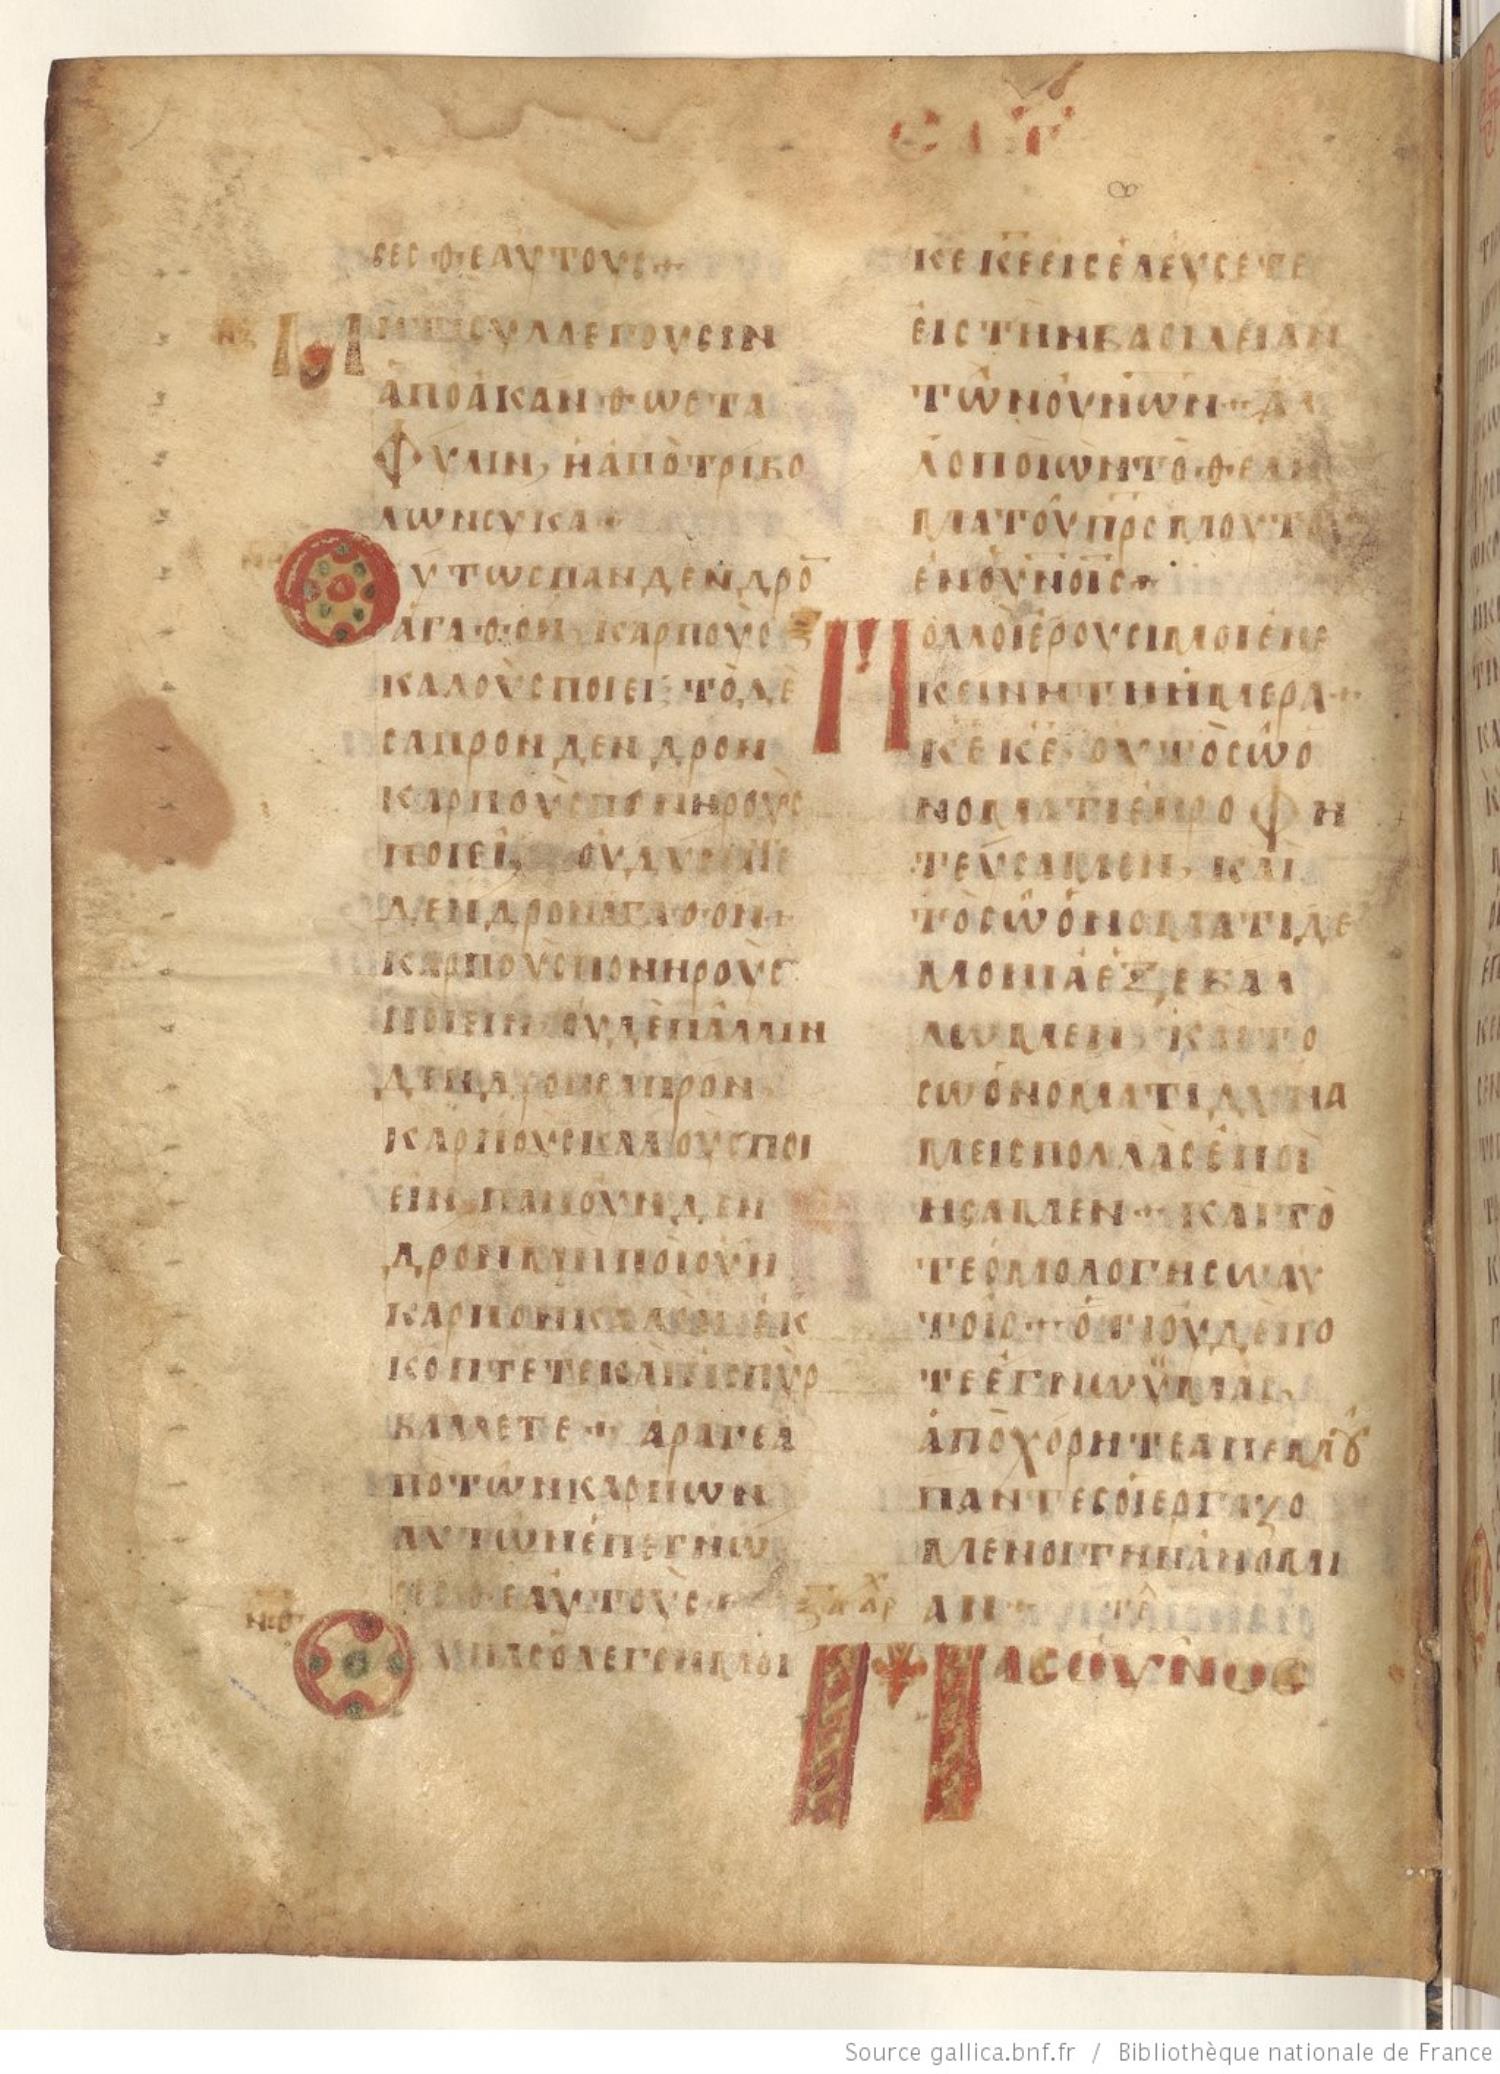 σεσθεαυτους
νζ
Μητισυλλεγουσιν
αποακανθωστα
φυλιν, ηαποτριβο
λωνσυκα
Ουτωσπανδενδρο
αγαθον καρπους
καλουσποιει τοδε
σαπρονδενδρον
καρπουσπονηρους
ποιει, ουδυ
δενδροναγαθον
καρπουσπονηρους
ποιειν ουδεπαλιν
δενδρονσαπρον
καρπουσκαλουσποι
ειν πανουνδεν
δρονμηποιουν
καρπονκαλον εκ
κοπτετεκαιεισπυρ
βαλλετε αραγεα
ποτωνκαρπων
αυτωνεπεγνω
σεσθεαυτους
νθ
Ουπασολεγονμοι
κε κεεισελευσετε
ειστηνβασιλειαν
τωνουνων αλ
λοποιωντοθελη
ματουπρσμουτου
ενουνοισ
ξ
Πολλοιερουσιμοιενε
κεινητηημερα
κε κε ουτοσωο
νοματιεπροφη
τευσαμεν, και
τοσωονοματιδε
μονιαεξεβαλ
λωμεν καιτο
σωονοματιδυνα
μεισπολλασεποι
ησαμεν καιτο
τεομολογησωαυ
τοισ οτιουδεπο
τεεγνωυμας,
αποχορητεαπεμου
παντεσοιεργαζο
μενοιτηνανομι
αν
ξα αρχ
Πασουνοσ
Source gallica.bnf.fr / Bibliothèque nationale de France